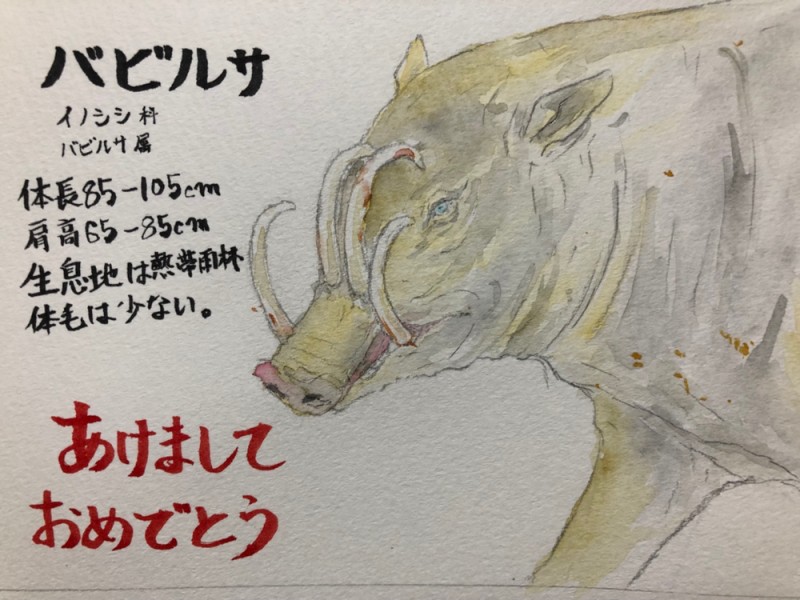 バビルサ
イノシシ科
バビルサ属
体長85-105cm
肩高65-85cm
生息地は熱帯雨林
体毛は少ない。
あけまして
おめでとう